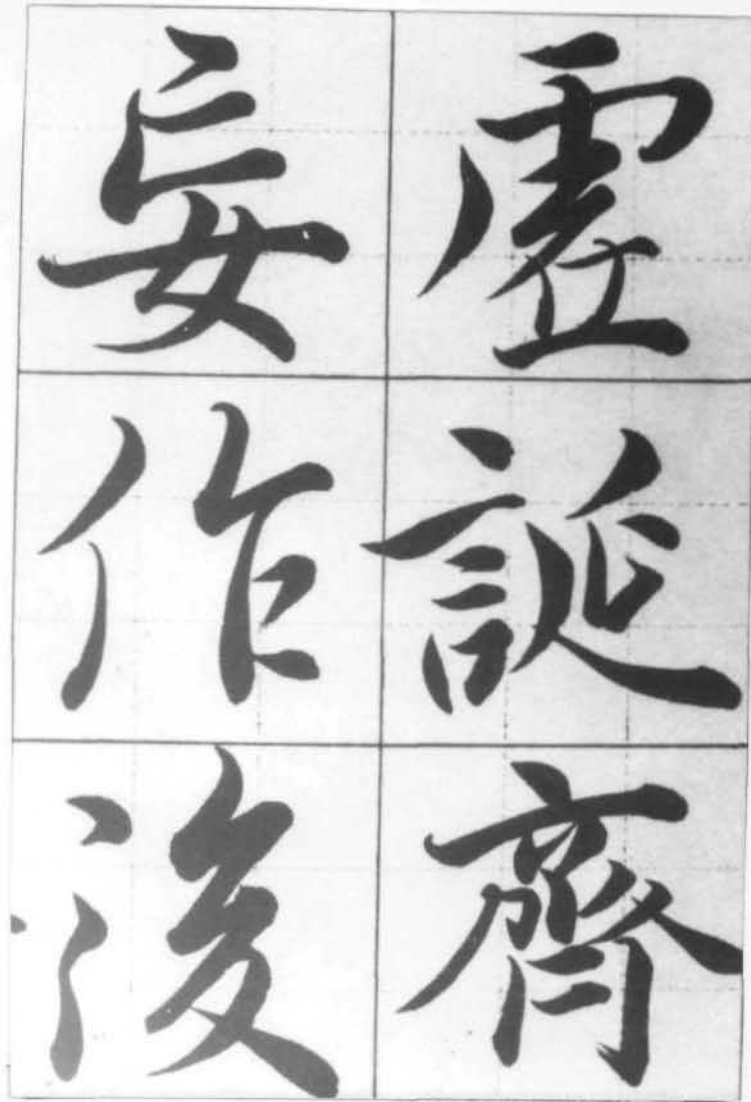 虛誕齊
妄作後